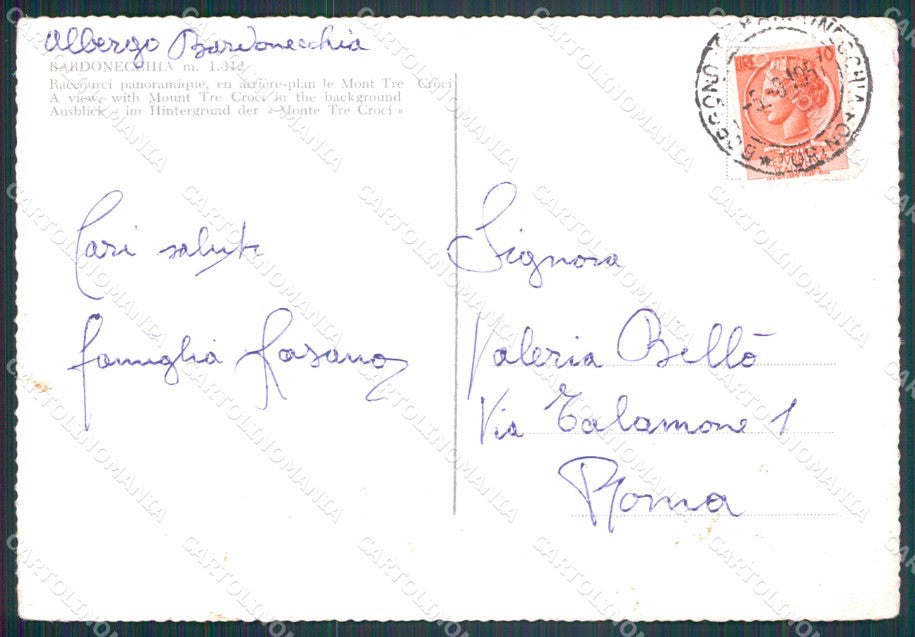 Albergo Bardonecchia
BARDONECCHIA m. 1.312
Raccourci panoramique, en arrière-plan le Mont Tre Croci
A view, with Mount Tre Croci in the background
Ausblick - im Hintergrund der « Monte Tre Croci »
LIRE 10
Cari saluti
famiglia Rasano
Signora
Valeria Bellò
Via Talamone 1
Roma
CARTOLINOMANIA